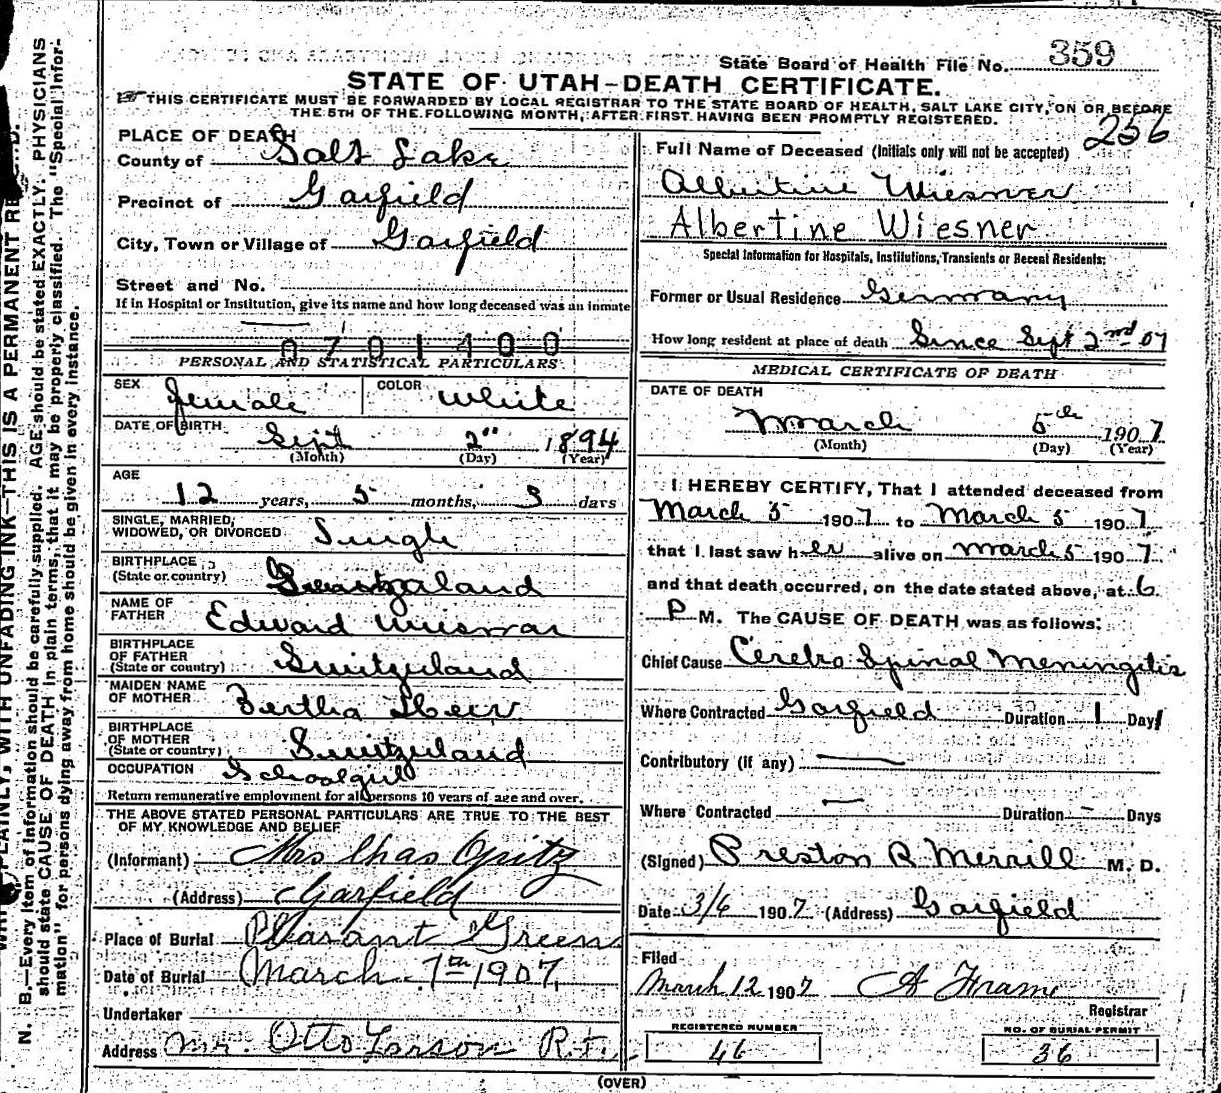 State Board of Health File No. 359
STATE OF UTAH-DEATH CERTIFICATE.
THIS CERTIFICATE MUST BE FORWARDED BY LOCAL REGISTRAR TO THE STATE BOARD OF HEALTH, SALT LAKE CITY, ON OR BEFORE
THE 5TH OF THE FOLLOWING MONTH, AFTER FIRST HAVING BEEN PROMPTLY REGISTERED.
256
PLACE OF DEATH
County of Salt Lake
Precinct of Garfield
City, Town or Village of Garfield
Street and No.
If in Hospital or Institution, give its name and how long deceased was an inmate
0701400
PERSONAL AND STATISTICAL PARTICULARS
SEX female COLOR White
DATE OF BIRTH Sept 2" 1894
(Month) (Day) (Year)
AGE
12 years, 5 months, 3 days
SINGLE, MARRIED,
WIDOWED, OR DIVORCED Single
BIRTHPLACE
(State or country)
NAME OF
FATHER Edward
BIRTHPLACE
OF FATHER
(State or country) Switzerland
MAIDEN NAME
OF MOTHER Bertha
BIRTHPLACE
OF MOTHER
(State or country) Switzerland
OCCUPATION Schoolgirl
Return remunerative employment for all persons 10 years of age and over.
THE ABOVE STATED PERSONAL PARTICULARS ARE TRUE TO THE BEST
OF MY KNOWLEDGE AND BELIEF
(Informant) Mrs Chas Opitz
(Address) Garfield
Place of Burial Pleasant Green
Date of Burial March 7th 1907
Undertaker
Address Mr. Otto Larson
Full Name of Deceased (Initials only will not be accepted)
Albertine Wiesner
Albertine Wiesner
Special Information for Hospitals, Institutions, Transients or Recent Residents:
Former or Usual Residence Germany
How long resident at place of death Since Sept 2nd 07
MEDICAL CERTIFICATE OF DEATH
DATE OF DEATH
March 5th 1907
(Month) (Day) (Year)
I HEREBY CERTIFY, That I attended deceased from
March 5 1907 to March 5 1907
that I last saw her alive on March 5 1907
and that death occurred, on the date stated above, at 6
P M. The CAUSE OF DEATH was as follows:
Chief Cause Cerebro Spinal Meningitis
Where Contracted Garfield Duration 1 Day
Contributory (if any) —
Where Contracted — Duration – Days
(Signed) Preston R Merrill M. D.
Date 3/6 1907 (Address) Garfield
Filed
March 12 1907 A Frame
Registrar
REGISTERED NUMBER
46
NO. OF BURIAL PERMIT
36
(OVER)
PLAINLY, WITH UNFADING INK—THIS IS A PERMANENT
N. B.—Every item of information should be carefully supplied. AGE should be stated EXACTLY. PHYSICIANS
should state CAUSE OF DEATH in plain terms, that it may be properly classified. The "Special Infor-
mation" for persons dying away from home should be given in every instance.